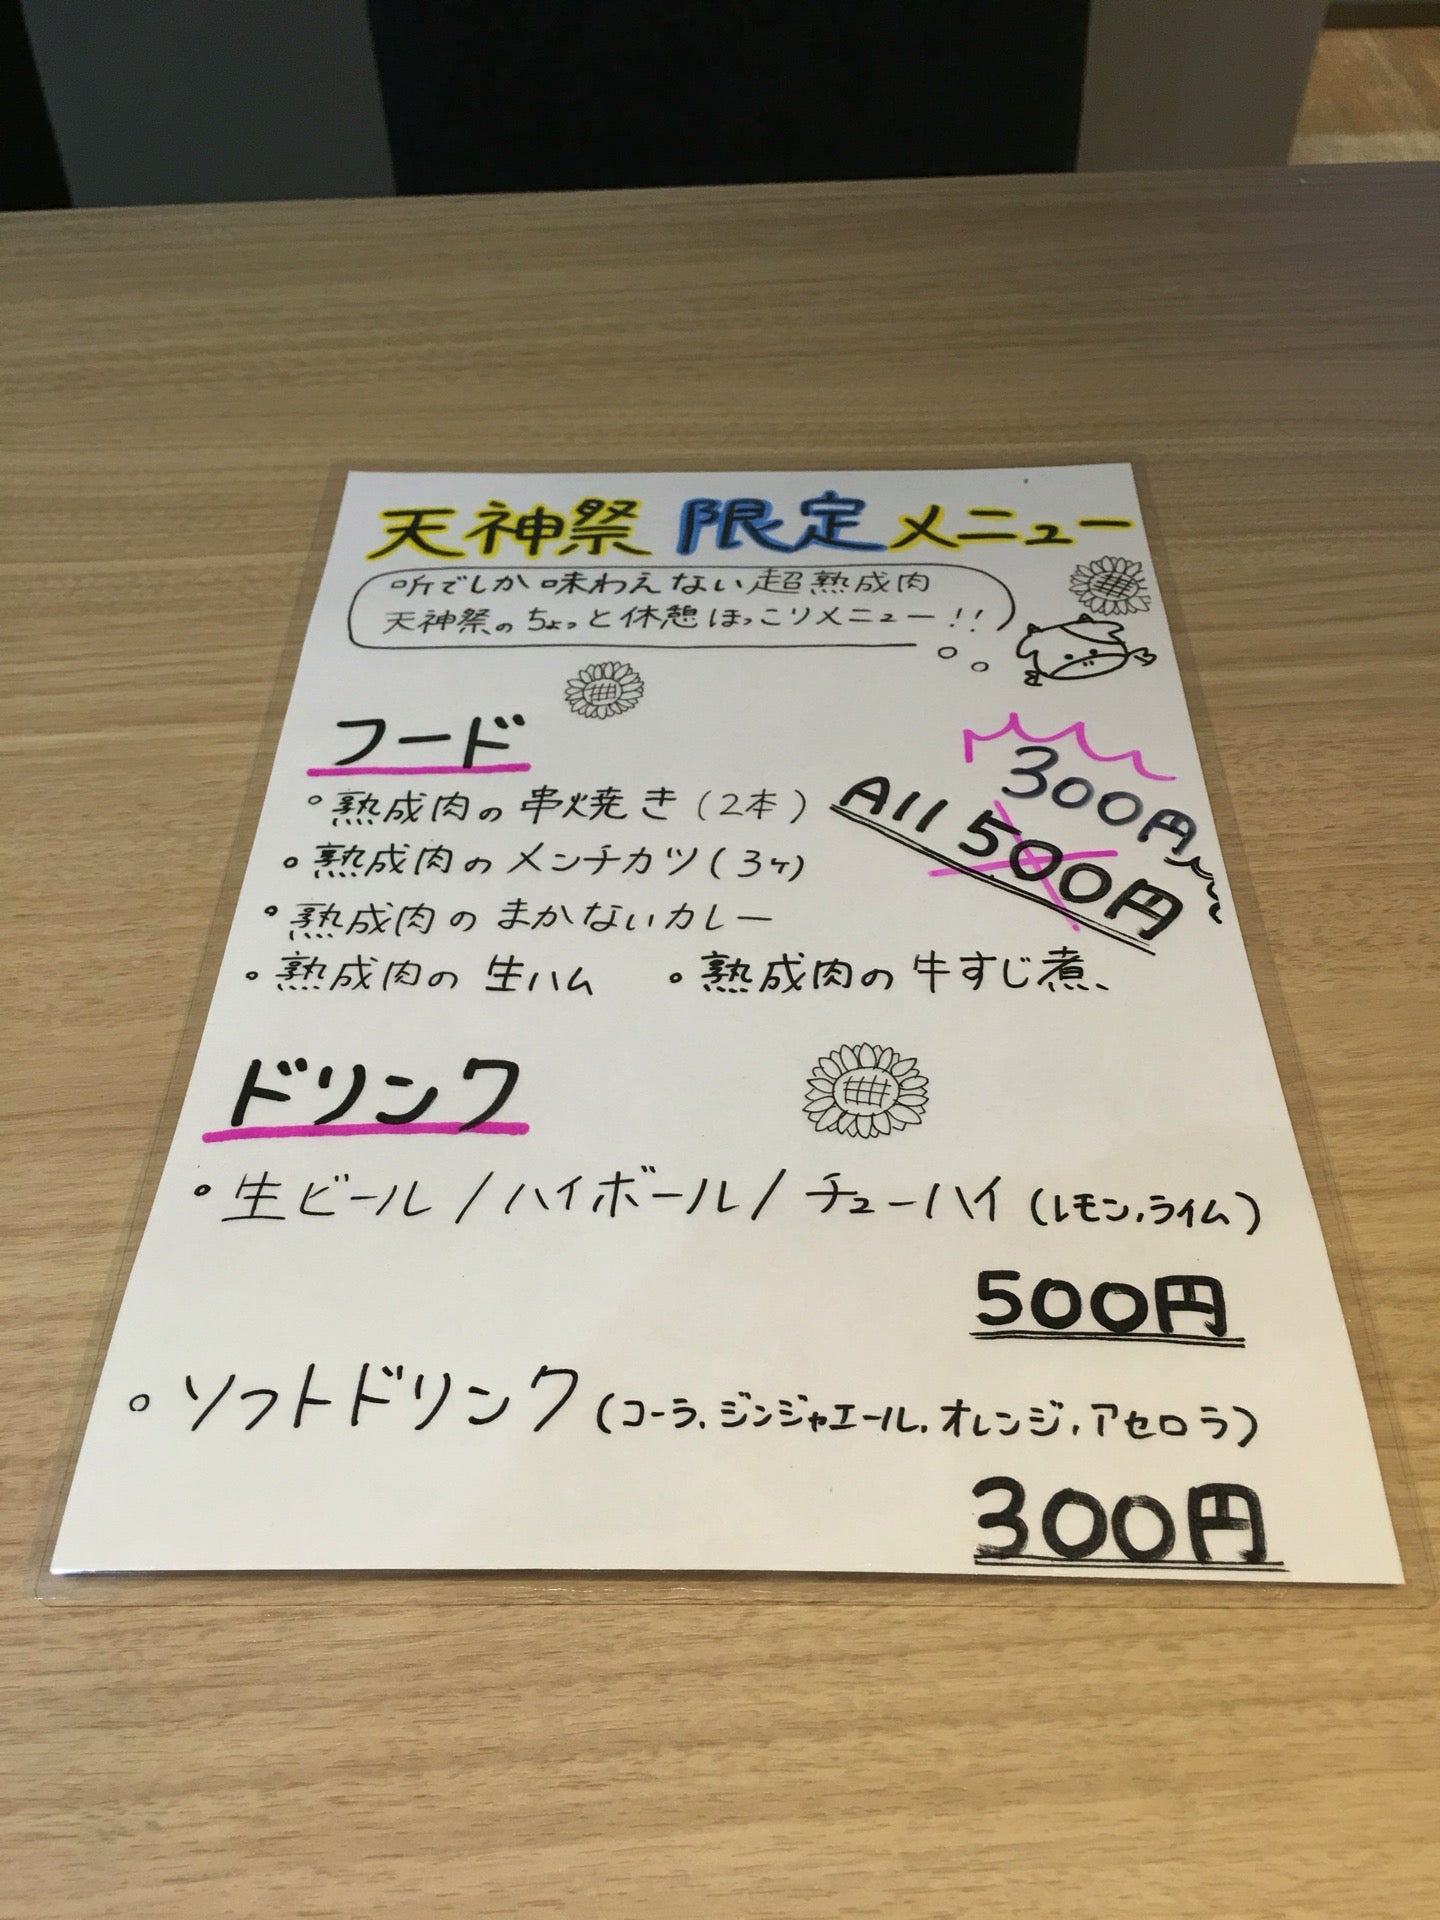 天神祭 限定メニュー
所でしか味わえない超熟成肉
天神祭のちょっと休憩ほっこりメニュー!!
フード
300円
All 500円
。熟成肉の串焼き(2本)
。熟成肉のメンチカツ(3ヶ)
。熟成肉のまかないカレー
。熟成肉の生ハム 。熟成肉の牛すじ煮、
ドリンク
。生ビール/ハイボール/チューハイ(レモン,ライム)
500円
。ソフトドリンク(コーラ,ジンジャエール,オレンジ,アセロラ)
300円